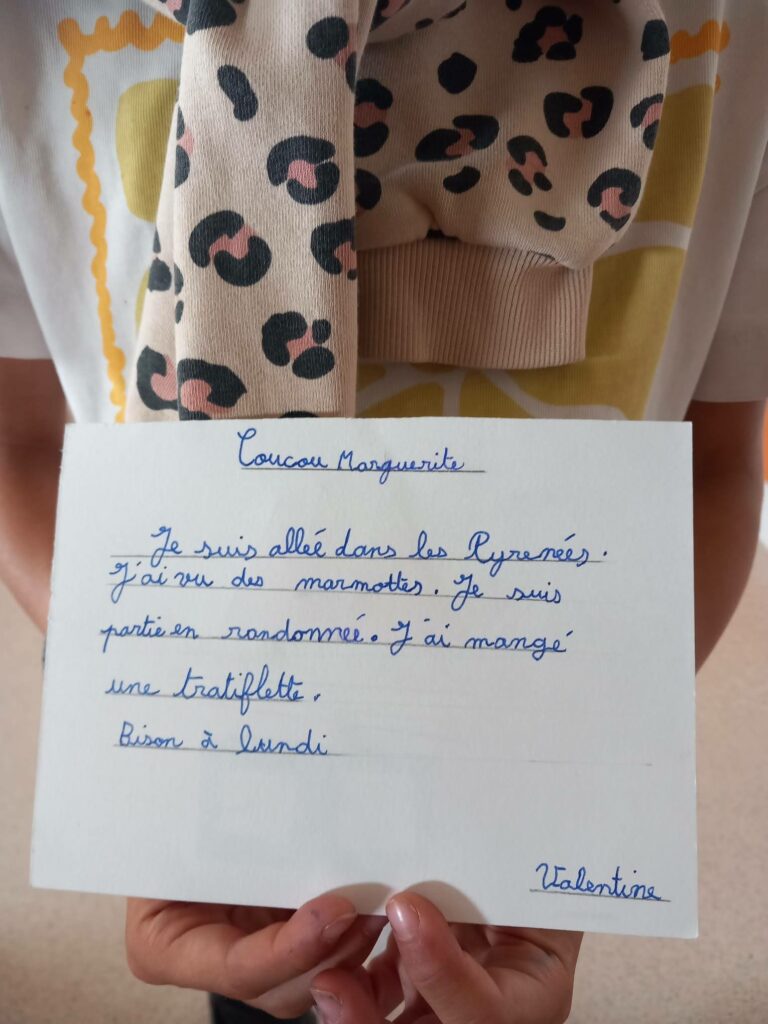 Coucou Marguerite
Je suis alleé dans les Pyreneés.
J'ai vu des marmottes. Je suis
partie en randonneé. J'ai mangé
une tratiflette.
Bison à lundi
Valentine